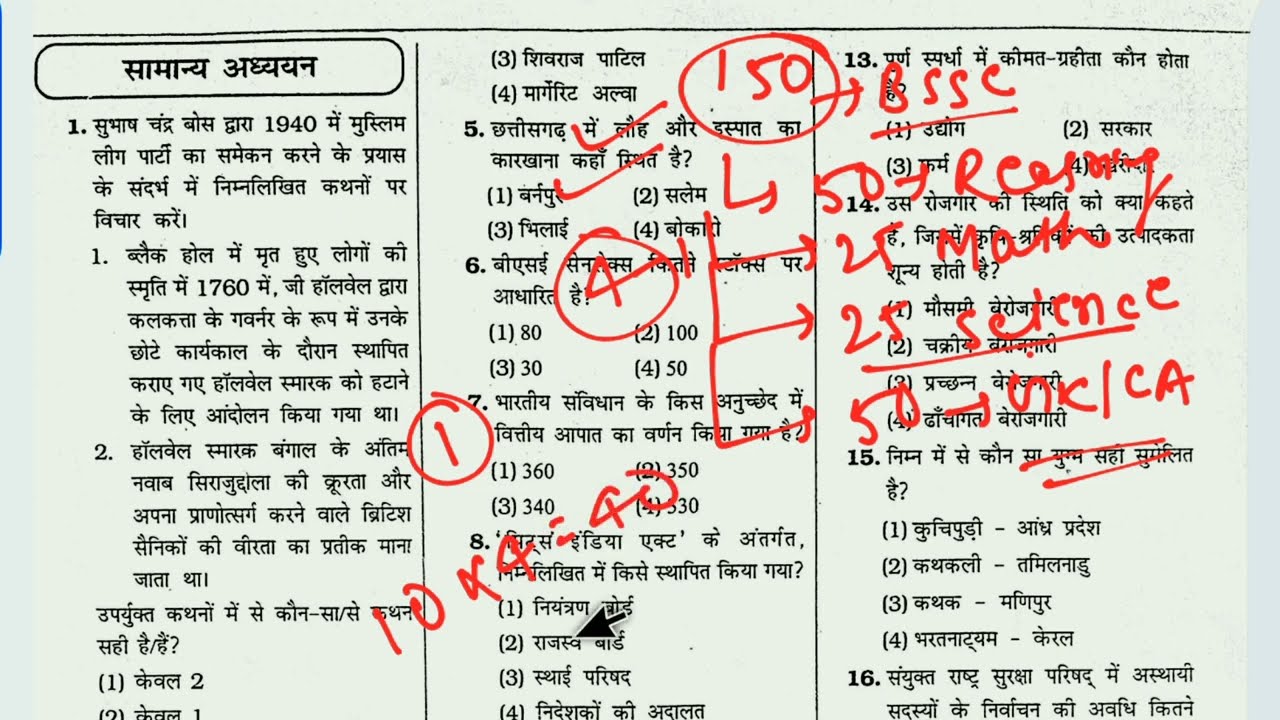 सामान्य अध्ययन
1. सुभाष चंद्र बोस द्वारा 1940 में मुस्लिम
लीग पार्टी का समेकन करने के प्रयास
के संदर्भ में निम्नलिखित कथनों पर
विचार करें।
1. ब्लैक होल में मृत हुए लोगों की
स्मृति में 1760 में, जी हॉलवेल द्वारा
कलकत्ता के गवर्नर के रूप में उनके
छोटे कार्यकाल के दौरान स्थापित
कराए गए हॉलवेल स्मारक को हटाने
के लिए आंदोलन किया गया था।
2. हॉलवेल स्मारक बंगाल के अंतिम
नवाब सिराजुद्दोला की क्रूरता और
अपना प्राणोत्सर्ग करने वाले ब्रिटिश
सैनिकों की वीरता का प्रतीक माना
जाता था।
उपर्युक्त कथनों में से कौन-सा/से कथन
सही है/हैं?
(1) केवल 2
(2) केवल 1
(3) शिवराज पाटिल
(4) मार्गेरिट अल्वा
5. छत्तीसगढ़ में लौह और इस्पात का
कारखाना कहाँ स्थित है?
(1) बर्नपुर (2) सलेम
(3) भिलाई (4) बोकारो
6. बीएसई सेनसेक्स कितने स्टॉक्स पर
आधारित है?
(1) 80 (2) 100
(3) 30 (4) 50
7. भारतीय संविधान के किस अनुच्छेद में
वित्तीय आपात का वर्णन किया गया है?
(1) 360 (2) 350
(3) 340 (4) 330
8. 'पिट्स इंडिया एक्ट' के अंतर्गत,
निम्नलिखित में किसे स्थापित किया गया?
(1) नियंत्रण बोर्ड
(2) राजस्व बोर्ड
(3) स्थाई परिषद
(4) निदेशकों की अदालत
13. पूर्ण स्पर्धा में कीमत-ग्रहीता कौन होता
है?
(1) उद्योग (2) सरकार
(3) फर्म (4) खरीदार
14. उस रोजगार की स्थिति को क्या कहते
हैं, जिसमें कृषि-श्रमिकों की उत्पादकता
शून्य होती है?
(1) मौसमी बेरोजगारी
(2) चक्रीय बेरोजगारी
(3) प्रच्छन्न बेरोजगारी
(4) ढाँचागत बेरोजगारी
15. निम्न में से कौन सा युग्म सही सुमेलित
है?
(1) कुचिपुड़ी - आंध्र प्रदेश
(2) कथकली - तमिलनाडु
(3) कथक - मणिपुर
(4) भरतनाट्यम - केरल
16. संयुक्त राष्ट्र सुरक्षा परिषद् में अस्थायी
सदस्यों के निर्वाचन की अवधि कितने
150 → BSSC
50 → Reasoning
25 Math
25 Science
50 → GK/CA
4
1
10 x 4 = 40